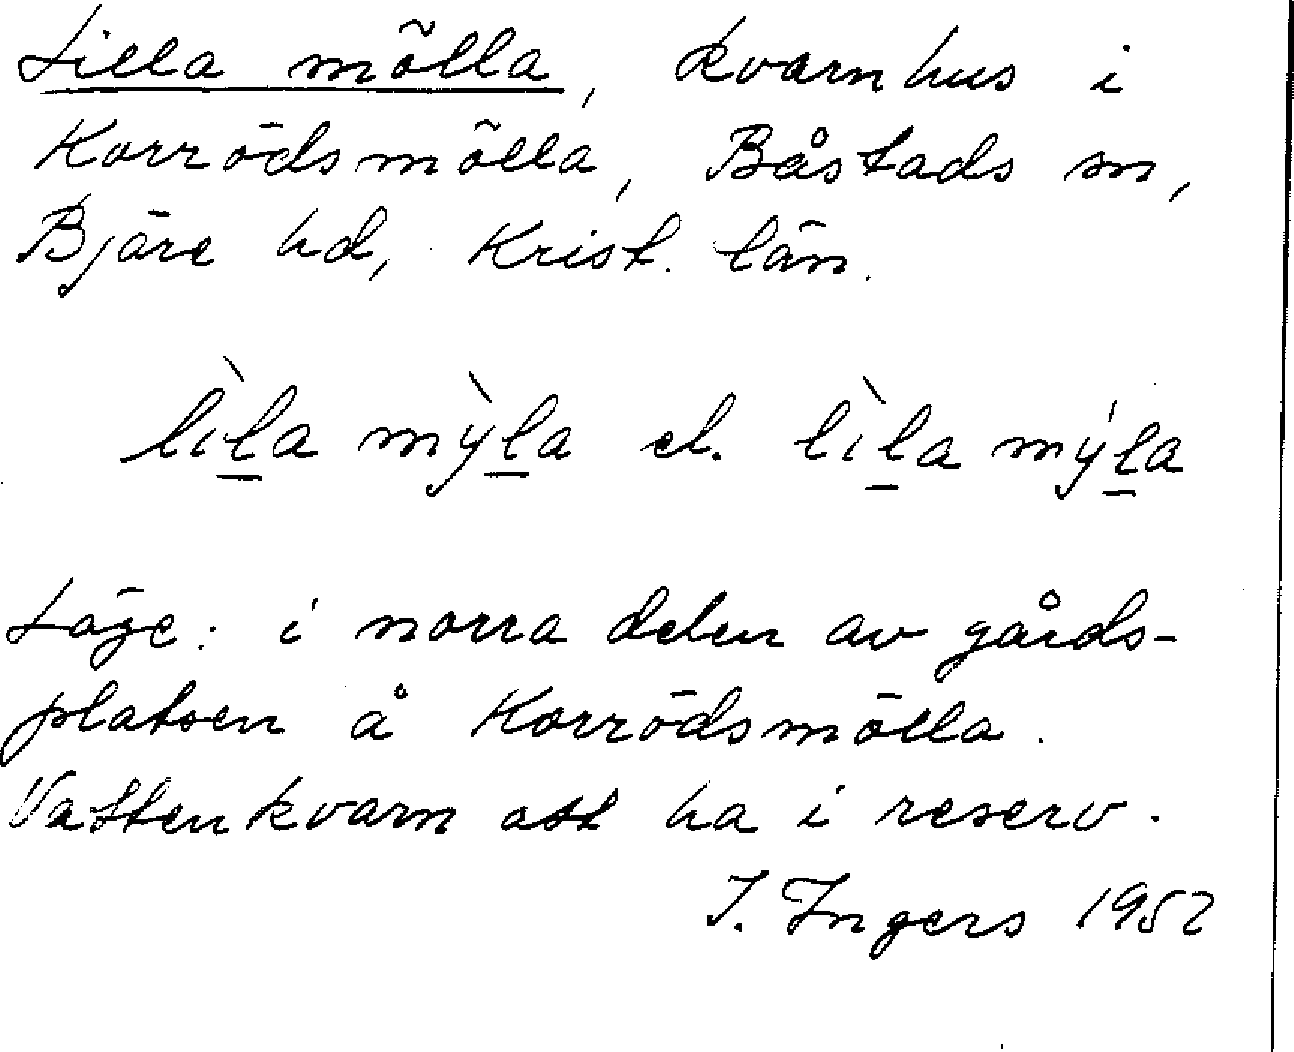 Lilla mölla, kvarnhus i
Korrödsmölla, Båstads sn,
Bjäre hd, Krist. län.
lìḻa mỳḻa el. lìḻa mýḻa
Läge: i norra delen av gårds-
platsen å Korrödsmölla.
Vattenkvarn att ha i reserv.
I. Ingers 1952